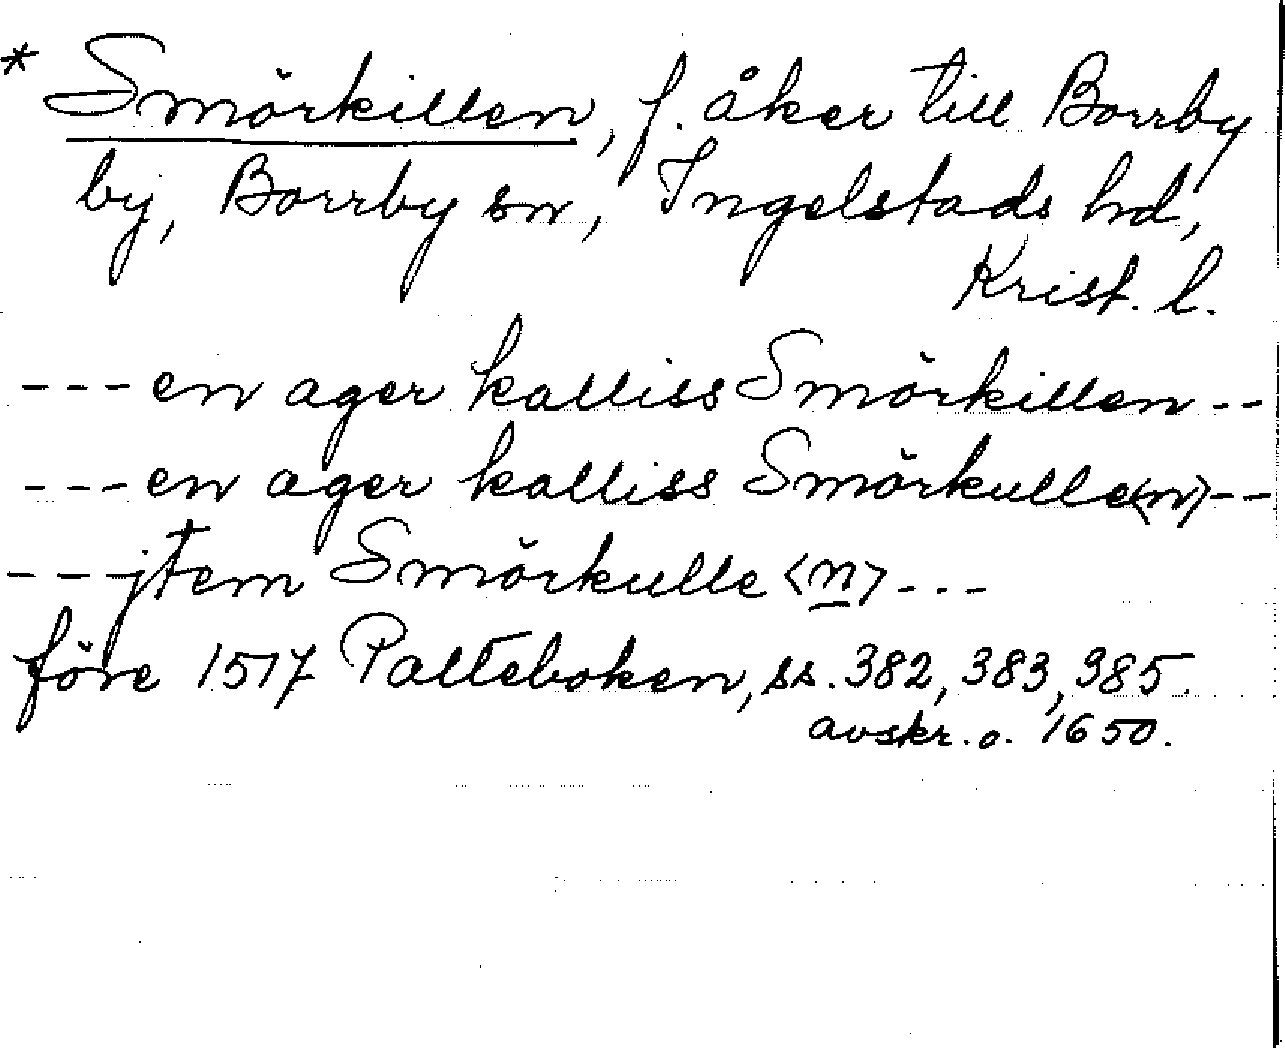 * Smörkillen, f. åker till Borrby
by, Borrby sn, Ingelstads hd,
Krist. l.
--- en ager kalliss Smörkillen --
--- en ager kalliss Smörkulle<n> --
--- jtem Smörkulle <n> ---
före 1517 Palteboken, ss. 382, 383, 385.
avskr. o. 1650.